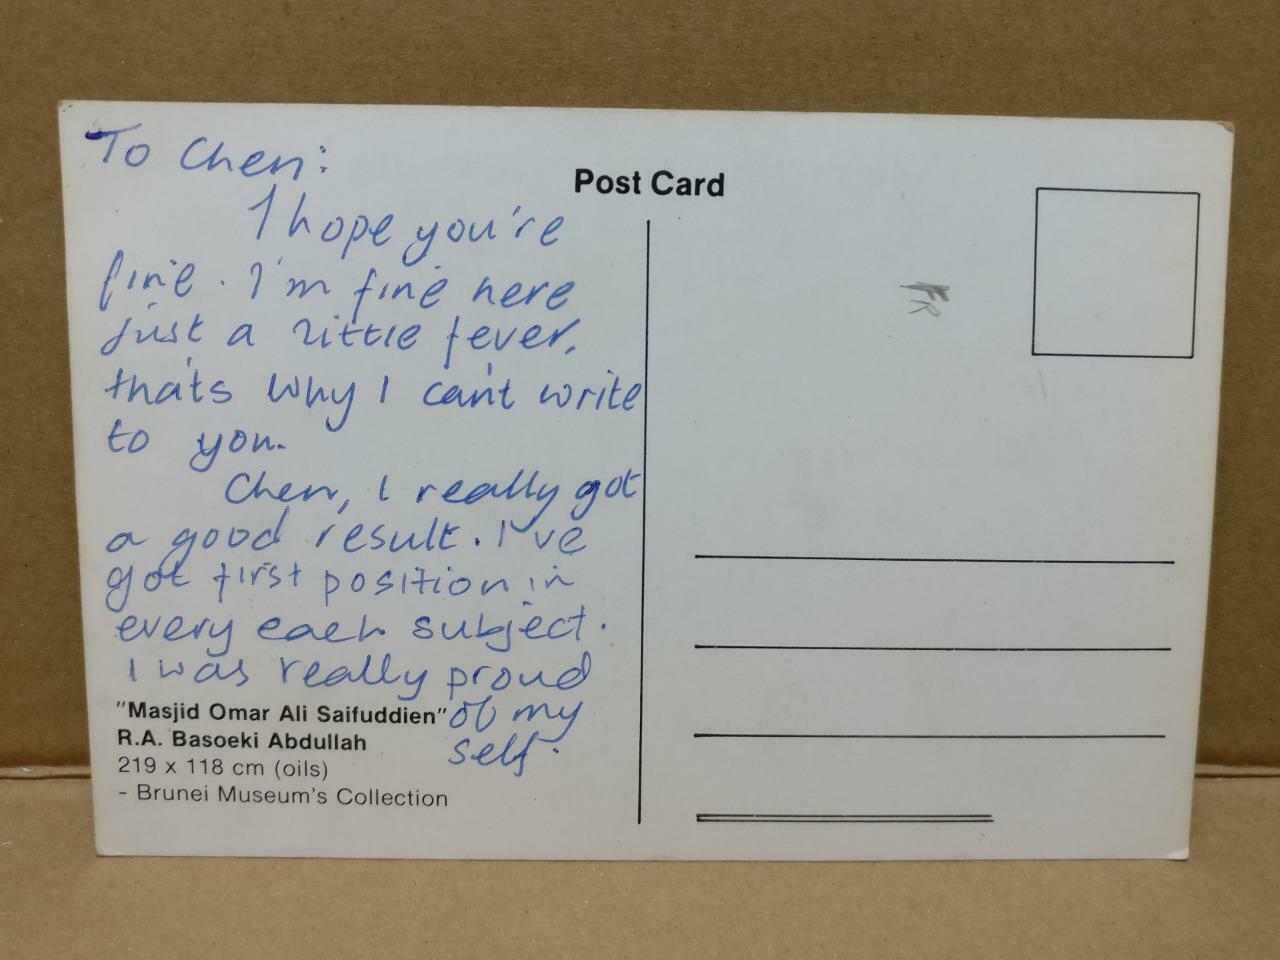 To Chen:
Post Card
I hope you're
fine. I'm fine here
just a little fever,
that's why I can't write
to you.
Chen, I really got
a good result. I've
got first position in
every each subject.
I was really proud
of my
self.
"Masjid Omar Ali Saifuddien"
R.A. Basoeki Abdullah
219 x 118 cm (oils)
- Brunei Museum's Collection